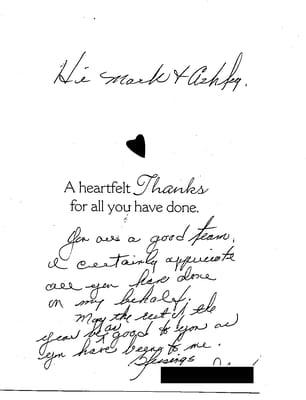 Hi Mark & Ashley.
A heartfelt Thanks
for all you have done.
You are a good team,
I certainly appreciate
all you have done
on my behalf.
May the rest of the
year be as good to you as
you have been to me.
Blessings